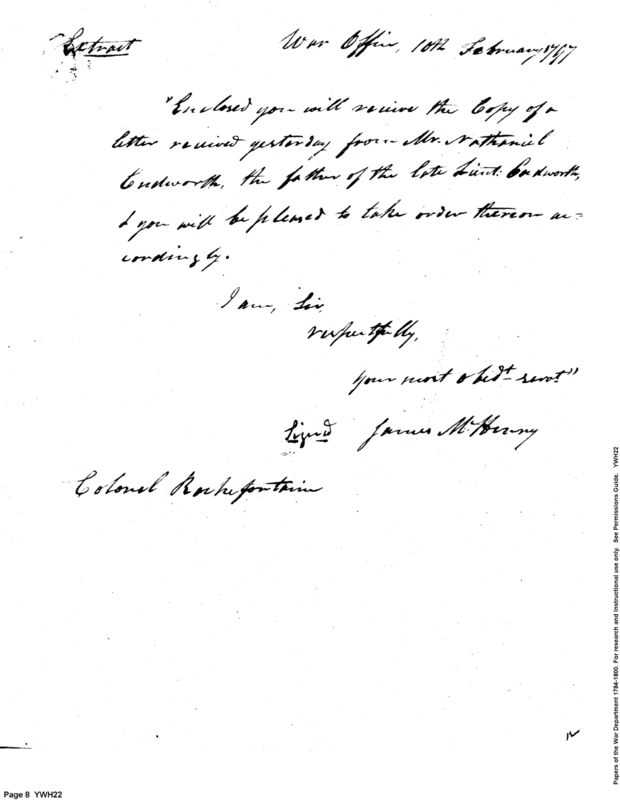 Extract
War Office, 10th February 1797
"Enclosed you will receive the Copy of a
letter received yesterday from Mr. Nathaniel
Cudworth, the father of the late Lieut: Cudworth,
& you will be pleased to take order thereon ac=
cordingly.
I am, Sir,
respectfully,
your most obedt. servt."
Signd James McHenry
Colonel Rochefontaine
Page 8 YWH22
Papers of the War Department 1784-1800. For research and instructional use only. See Permissions Guide. YWH22